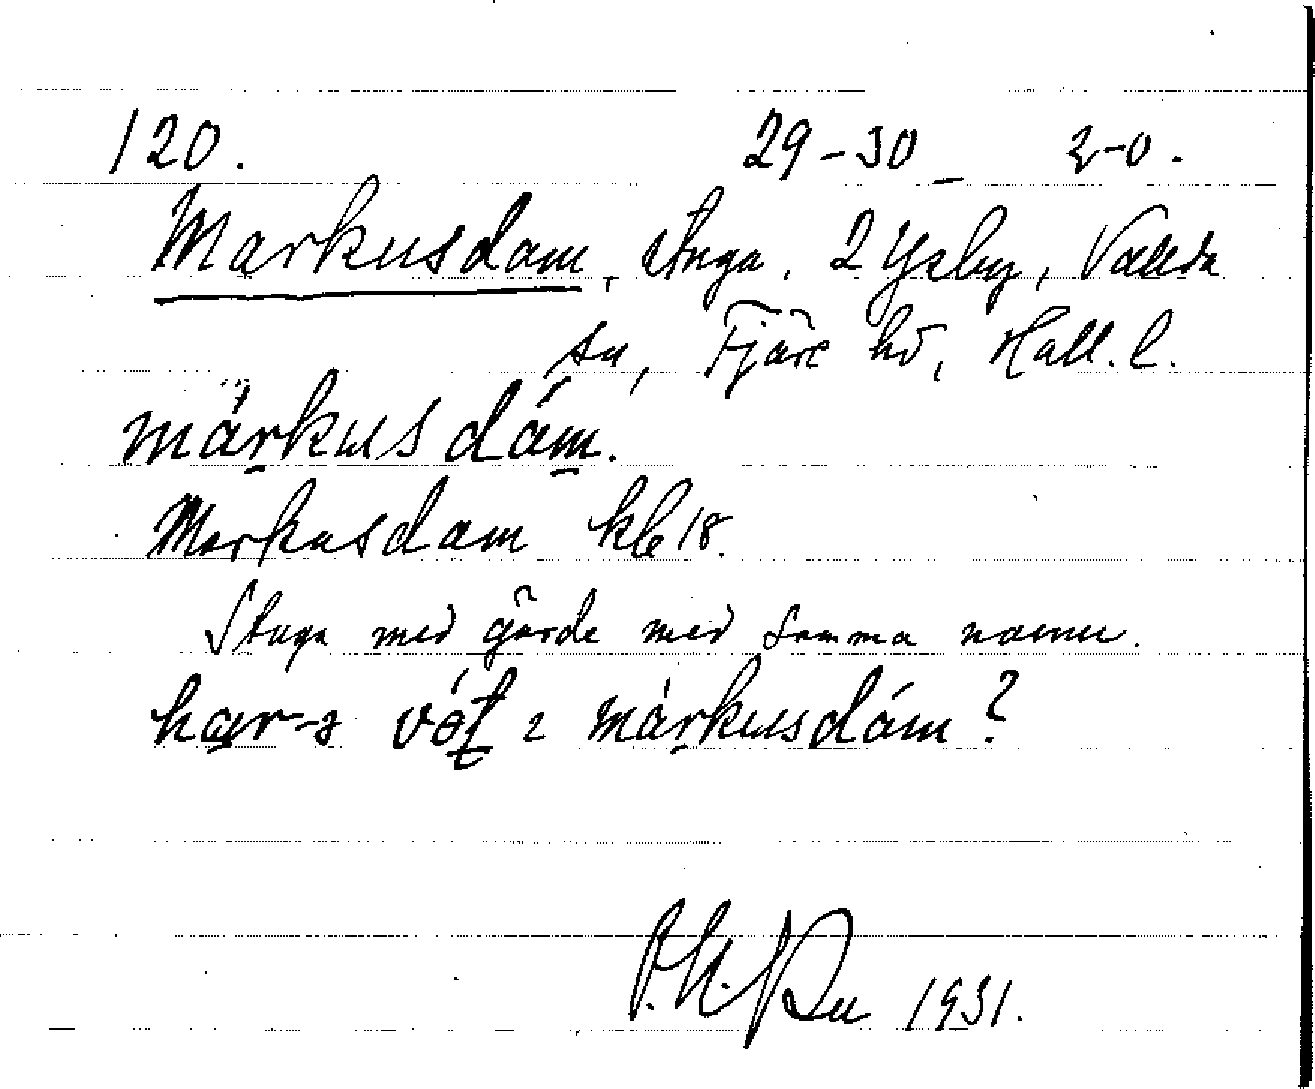 120. 29-30 2-0.
Markusdam, stuga. 2 Ysby, Vallda
sn, Fjäre hd, Hall. l.
märkusdám.
Markusdam kbl 18.
Stuga med gärde med samma namn.
har-s vót i màrkusdám?
1931.